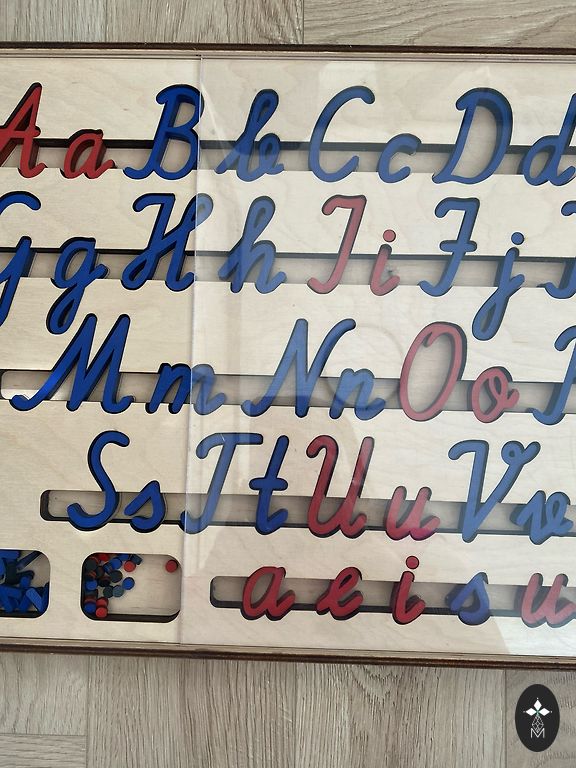 A a B b C c D d
G g H h I i J j
M m N n O o
S s T t U u V v
a e i s u
M